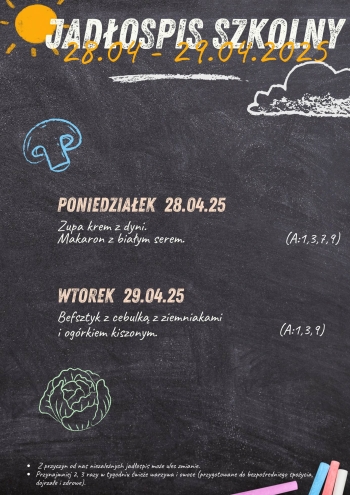 JADŁOSPIS SZKOLNY
28.04 - 29.04.2025
PONIEDZIAŁEK 28.04.25
Zupa krem z dyni.
Makaron z białym serem. (A:1,3,7,9)
WTOREK 29.04.25
Befsztyk z cebulką z ziemniakami
i ogórkiem kiszonym. (A:1,3,9)
• Z przyczyn od nas niezależnych jadłospis może ulec zmianie.
• Przynajmniej 2, 3 razy w tygodniu świeże warzywa i owoce (przygotowane do bezpośredniego spożycia,
dojrzałe i zdrowe).